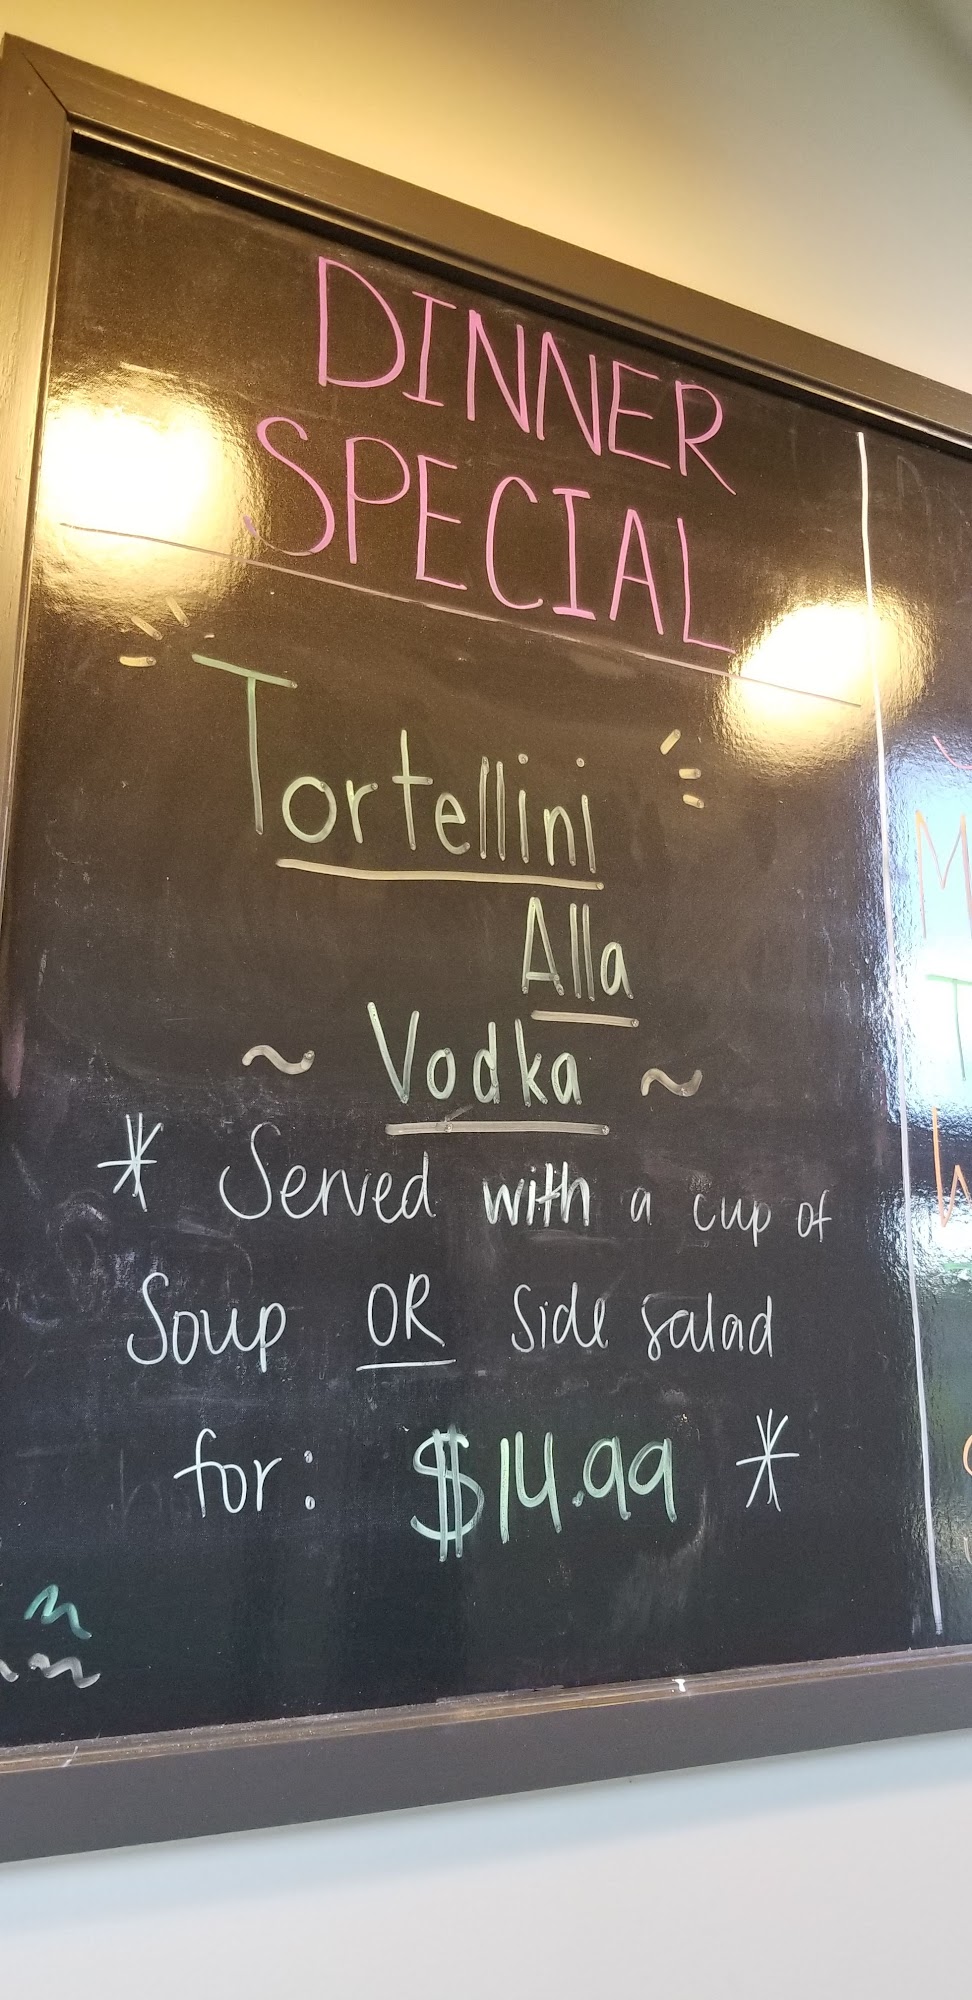 DINNER
SPECIAL
Tortellini
Alla
~ Vodka ~
* Served with a cup of
Soup OR side salad
for: $14.99 *